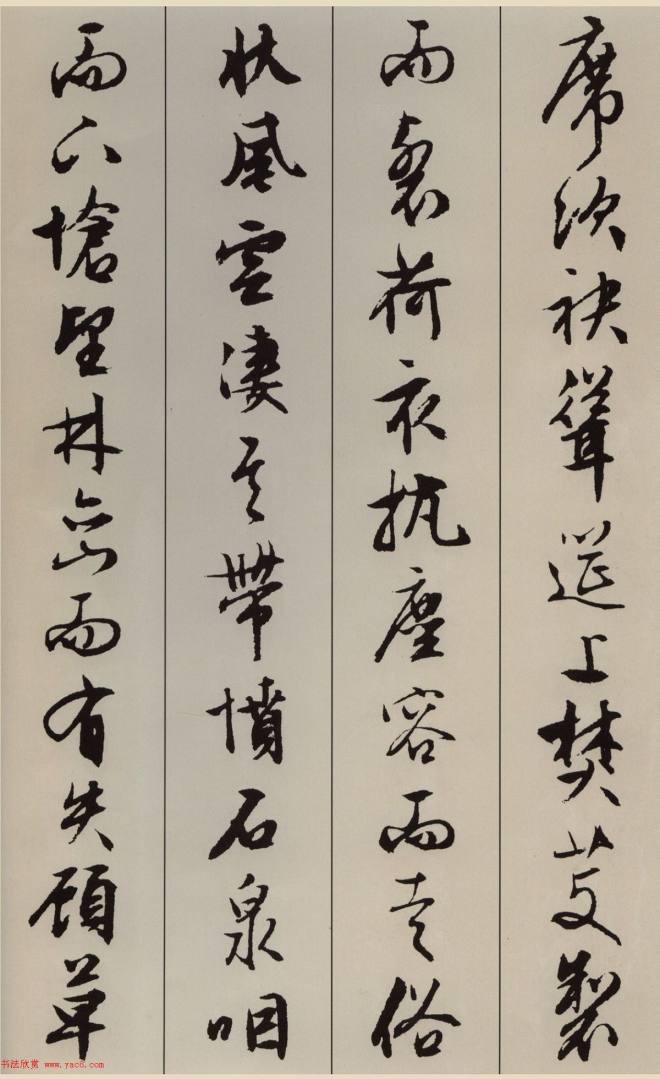 席次袂聳筵上焚芰製
而裂荷衣抗塵容而走俗
狀風雲凄其帶憤石泉咽
而下愴望林巒而有失顧草
书法欣赏 www.yac6.com